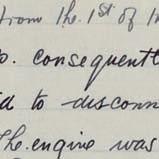 from the 1st of
p. consequentl
d to disconn
The engine was